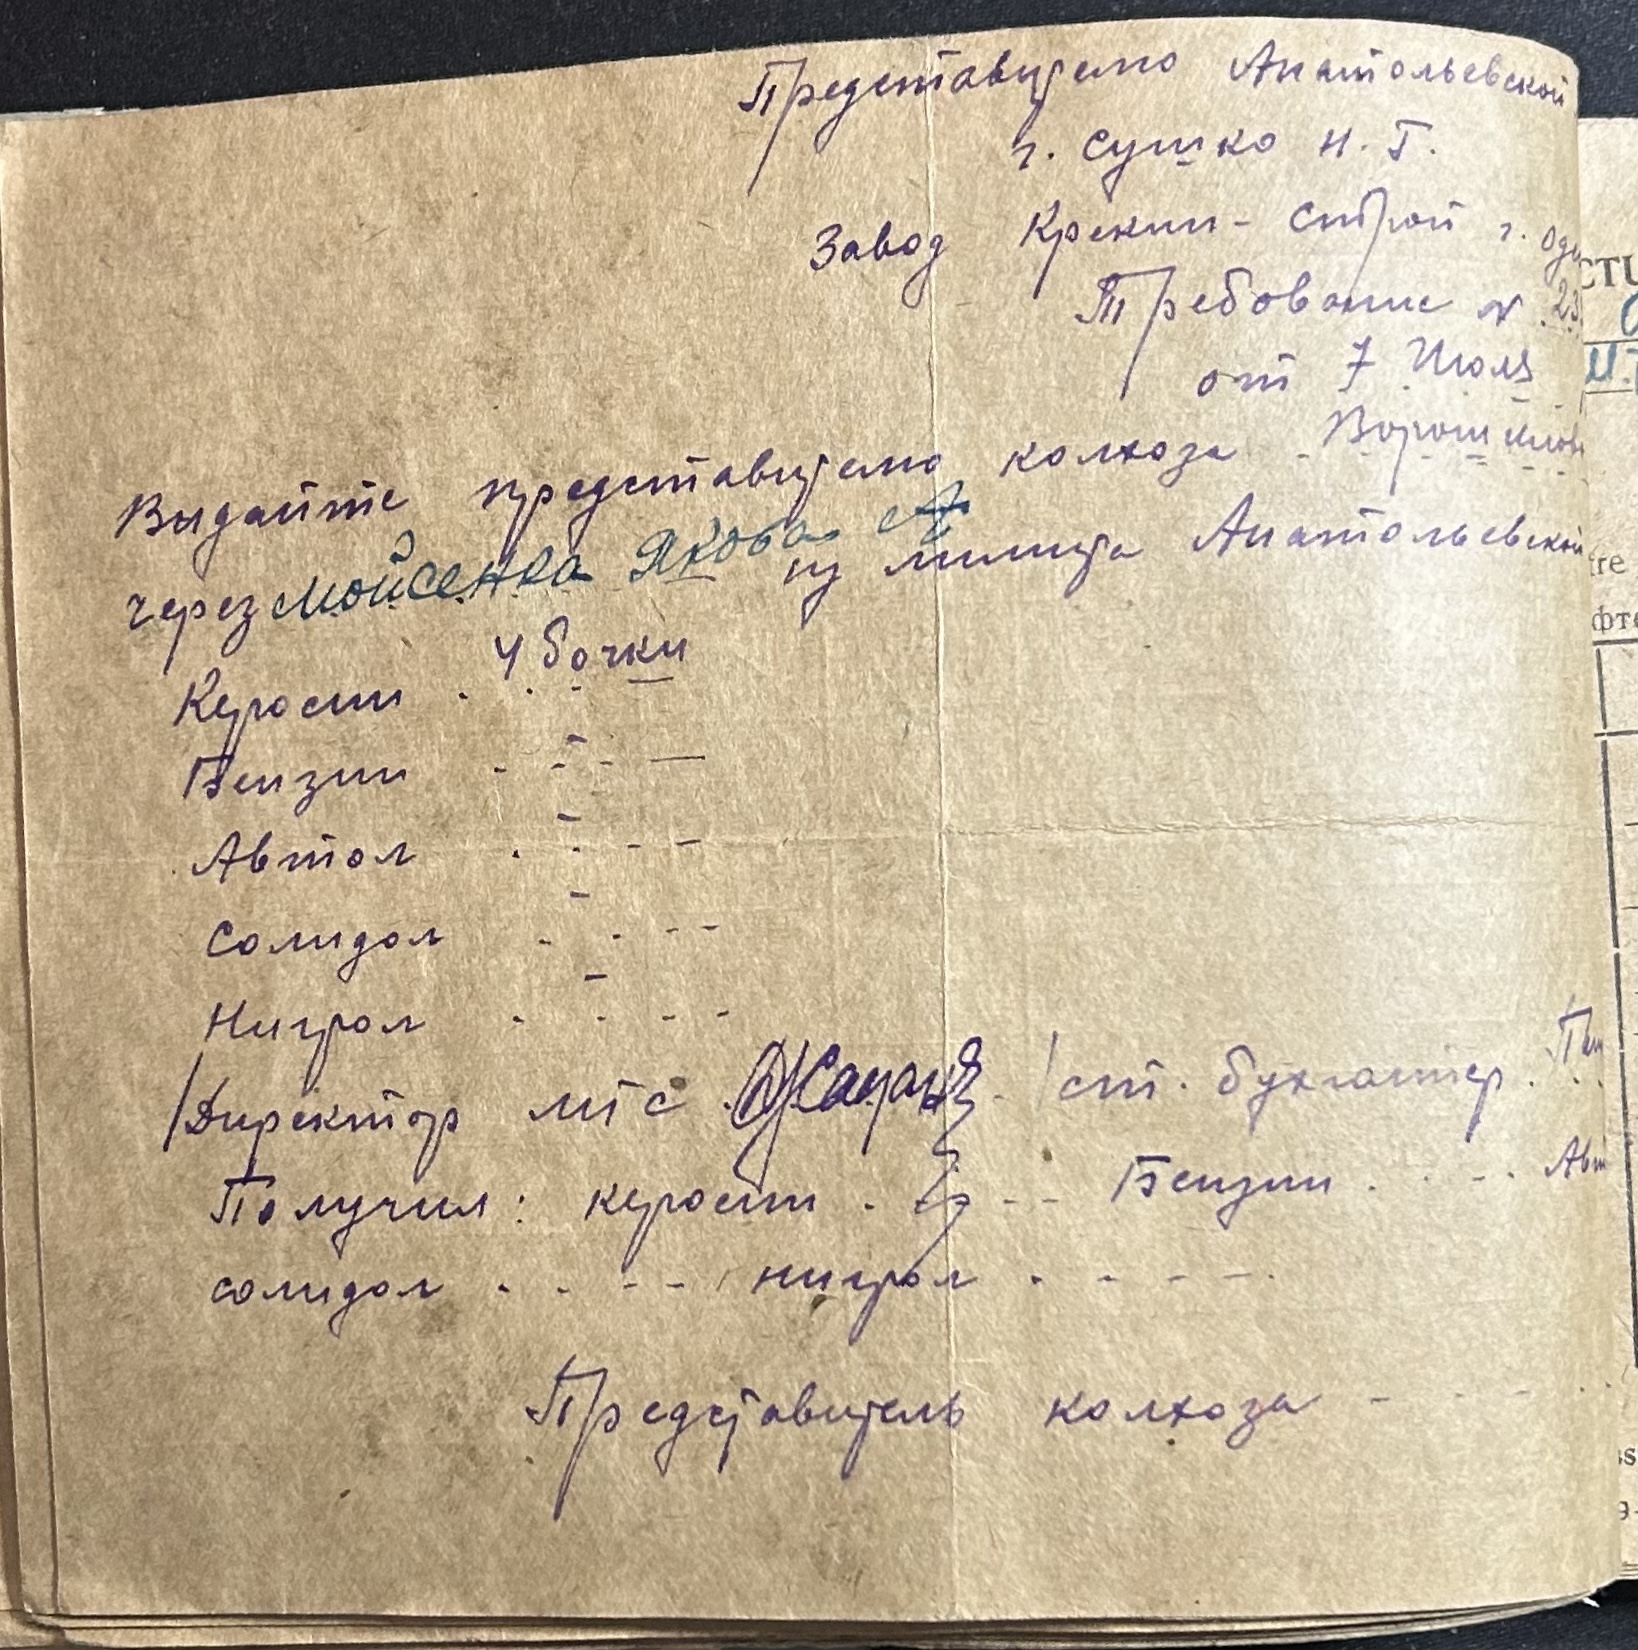 Представителю Анатольевской
г. Сушко Н. Г.
Завод Крекин-Строй г. Оде
Требование № 23
от 7 Июля
Выдайте представителю колхоза Ворошилов
через Мойсенка Якова А из лимита Анатольевской
Керосин 4 бочки
Бензин
Автол
Солидол
Нигрол
/Директор МТС / ст. бухгалтер
Получил: керосин Бензин Авт
солидол нигрол
Представитель колхоза